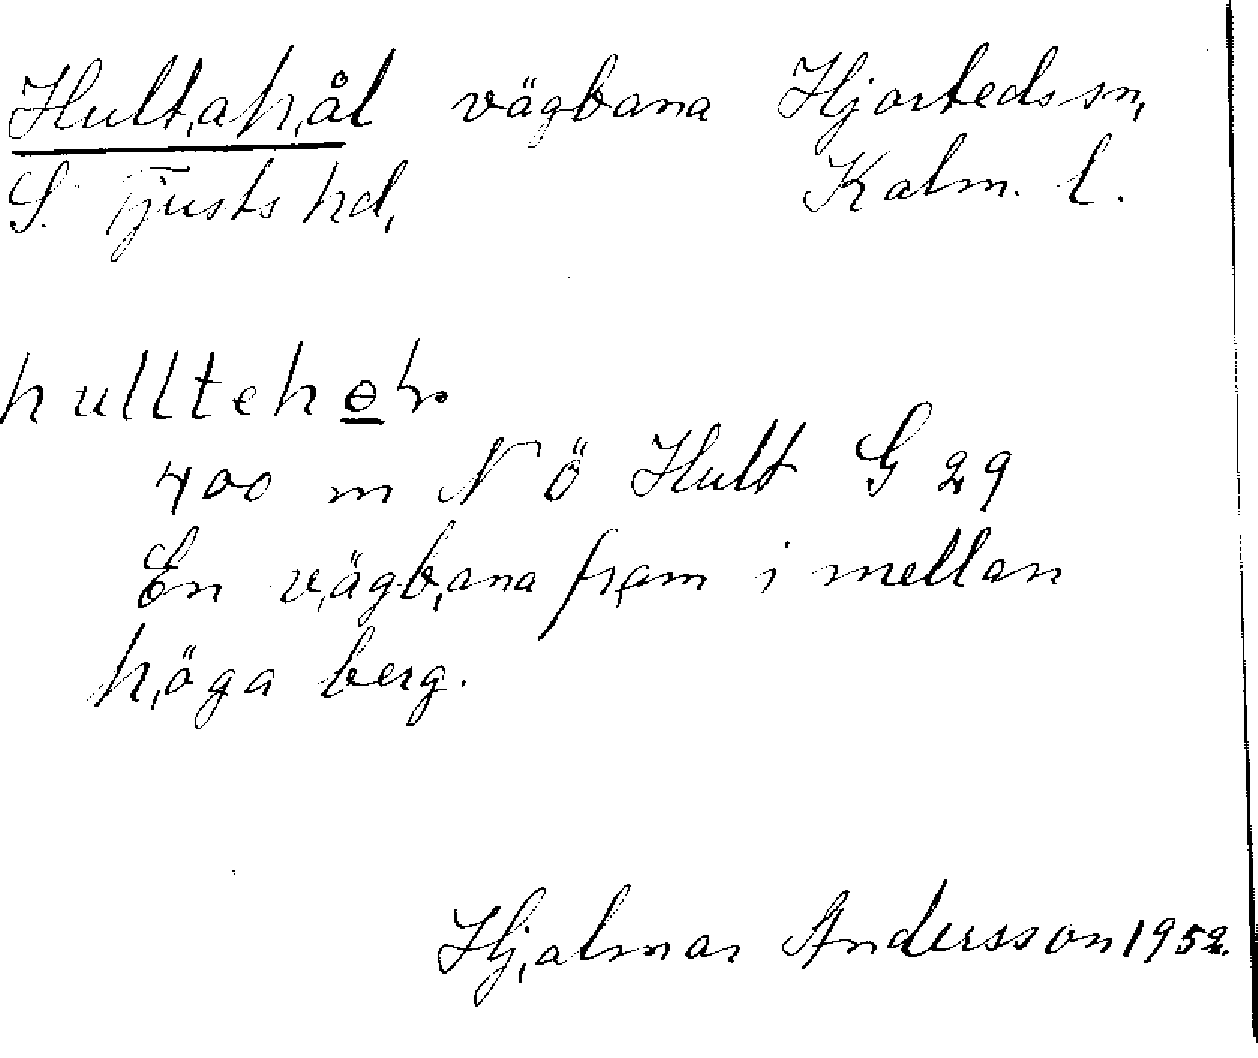 Hultahål vägbana Hjorteds sn,
S. Tjusts hd, Kalm. l.
hulltehɵl.
400 m N Ö Hult G 29
En vägbana fram i mellan
höga berg.
Hjalmar Andersson 1952.